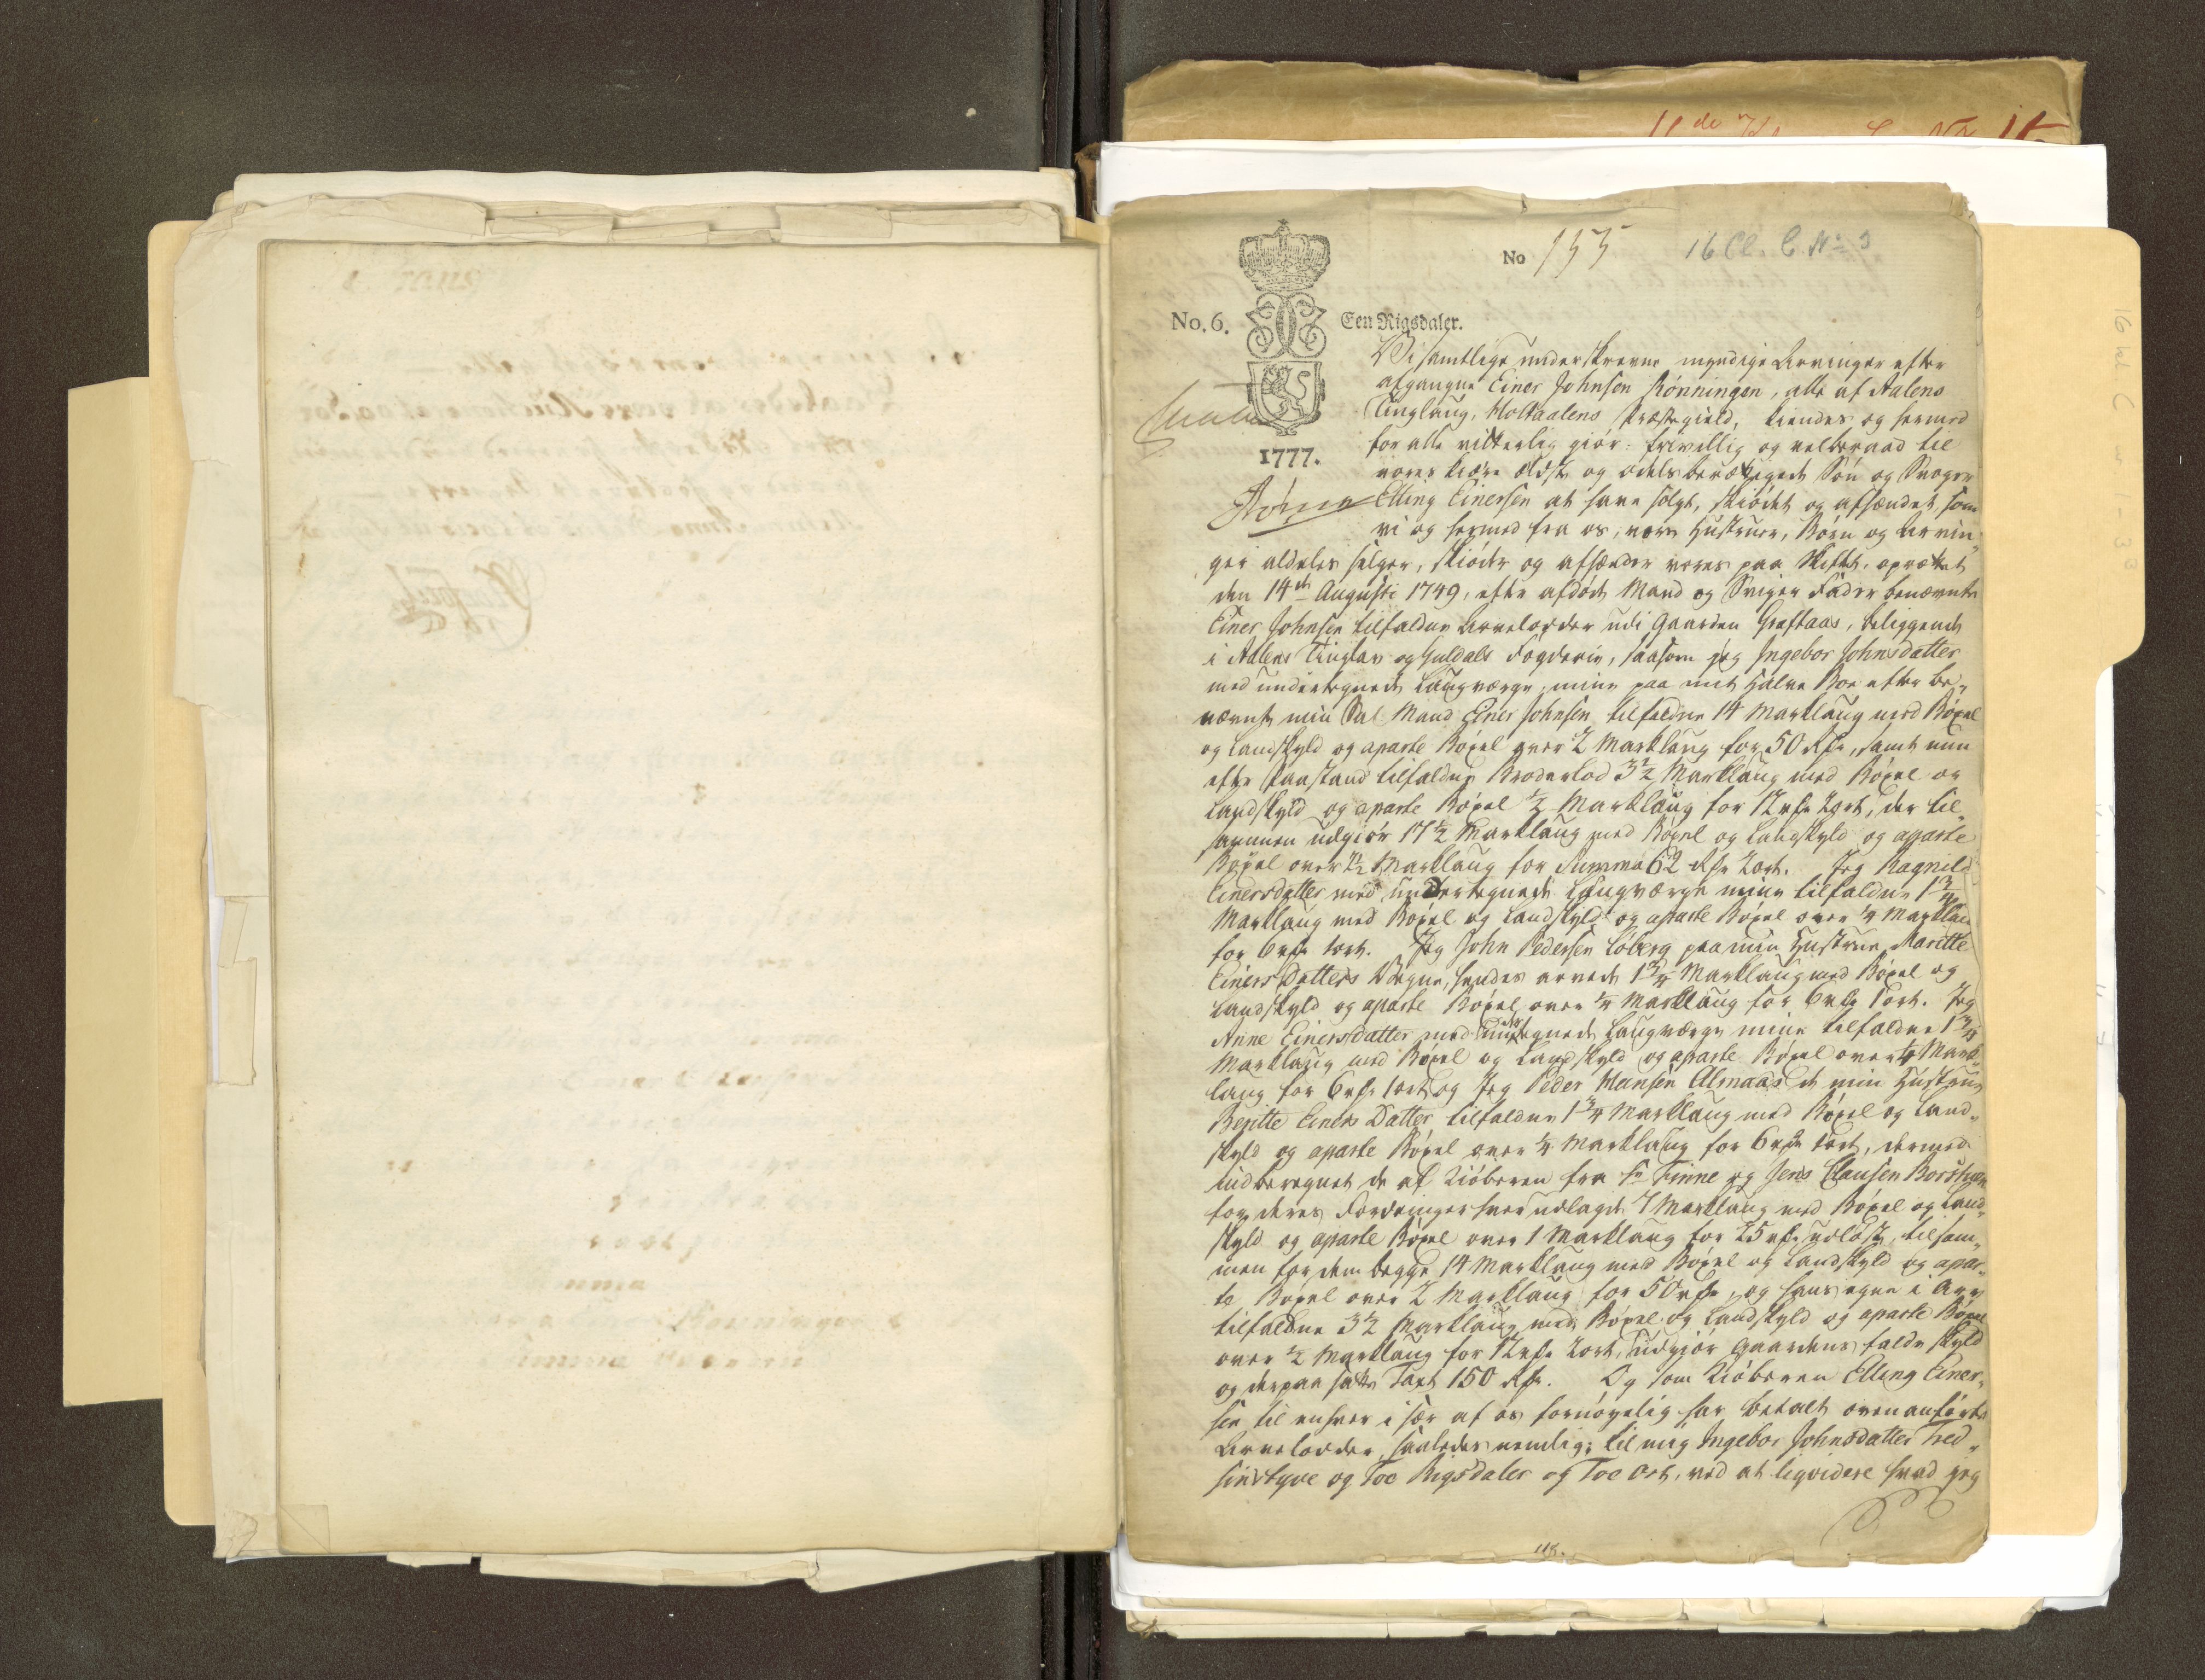 No 155
16 Cl. C No 3
No. 6.
Een Rigsdaler.
1777.
Vi samtlige underskrevne myndige Arvinger efter
afgangne Einer Johnsen Rønningen, alle af Aalens
Tinglaug, Holtaalens Præstegield, kiendes og hermed
for alle vitterlig giør: frivillig og velberaad til
vores kiære ældste og odelsberettigede Søn og Svoger
Elling Einersen at have solgt, skiødet og afhændet, som
vi og hermed fra os, vore Hustruer, Børn og Arvin-
ger aldeles sælger, skiøder og afhænder vores paa Skiftet, oprettet
den 14de Augusti 1749, efter afdøde Mand og Sviger Fader benævnte
Einer Johnsen tilfaldne Arvelodder udi Gaarden Græftaas, beliggende
i Aalens Tinglav og Guldals Fogderie, saasom jeg Ingebor Johnsdatter
med undertegnede Laugværge, mine paa mit halve Boe efter be-
nævnte min Sal. Mand Einer Johnsen tilfaldne 14 Marklaug med Bøxel
og Landskyld og aparte Bøxel over 2 Marklaug for 50 Rdr, samt min
efter Paastand tilfaldne Broderlod 3½ Marklaug med Bøxel og
Landskyld og aparte Bøxel ½ Marklaug for 12 rdr 2 ort, der til-
sammen udgiør 17½ Marklaug med Bøxel og Landskyld og aparte
Bøxel over 2½ Marklaug for Summa 62 Rdr 2 ort. Jeg Ragnild
Einersdatter med undertegnede Laugværge mine tilfaldne 1¾
Marklaug med Bøxel og Landskyld og aparte Bøxel over ¼ Marklau
for 6 rdr 1 ort. Jeg John Pedersen Løberg paa min Hustrue Maritte
Einers Datters Vegne, hendes arvede 1¾ Marklaug med Bøxel og
Landskyld og aparte Bøxel over ¼ Marklaug for 6 rdr 1 ort. Jeg
Anne Einersdatter med undertegnede Laugværge mine tilfaldne 1¾
Marklaug med Bøxel og Landskyld og aparte Bøxel over ¼ Mark-
laug for 6 rdr 1 ort og Jeg Peder Hansen Almaas et min Hustrue
Beritte Einers Datter tilfaldne 1¾ Marklaug med Bøxel og Land-
skyld og aparte Bøxel over ¼ Marklaug for 6 rdr 1 ort, dermed
indberegnet de af Kiøberen fra Sr Finne og Jens Clausen
for deres Fordringer hver udlagde 7 Marklaug med Bøxel og Land-
skyld og aparte Bøxel over 1 Marklaug for 25 rdr udløste, tilsam-
men for dem begge 14 Marklaug med Bøxel og Landskyld og apar-
te Bøxel over 2 Marklaug for 50 rdr, og hans egne i Arv
tilfaldne 3½ Marklaug med Bøxel og Landskyld og aparte Bøxel
over ½ Marklaug for 12 rdr 2 ort, udgiør Gaardens fulde Skyld
og derpaa satte Taxt 150 Rdr. Og som Kiøberen Elling Einer-
sen til enhver i sær af os fornøyelig har betalt ovenanførte
Arvelodder, saaledes nemlig: til mig Ingebor Johnsdatter Tred-
sindstyve og Toe Rigsdaler og Toe Ort, ved at liqvidere hvad jeg